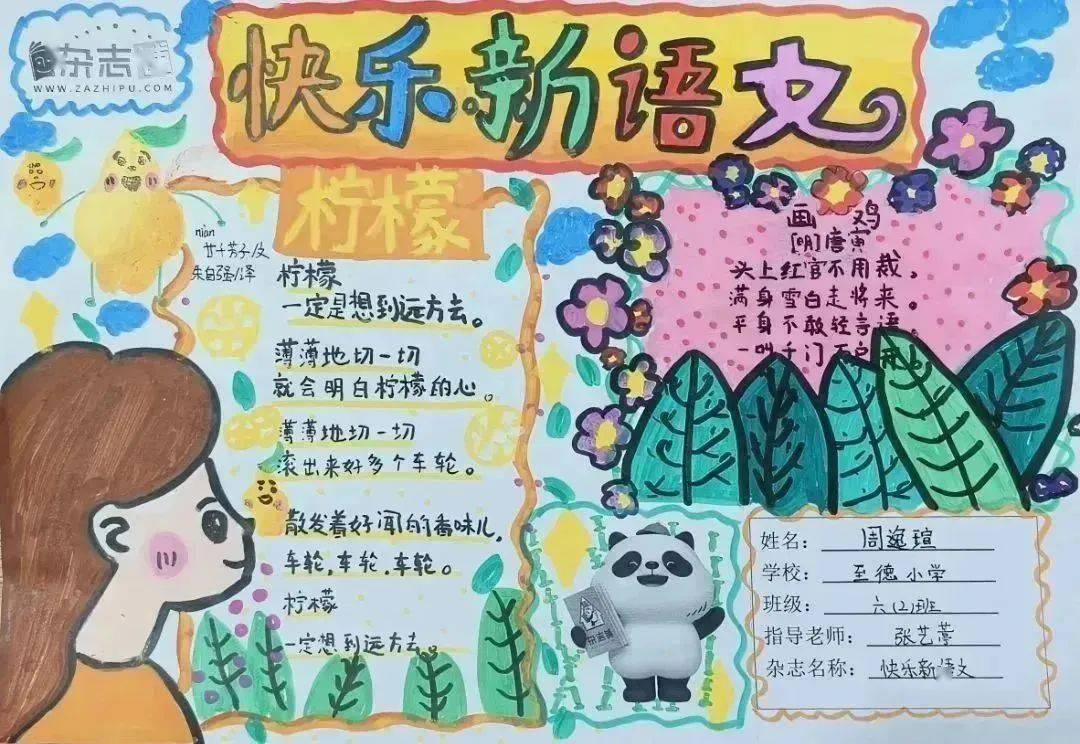 杂志
WWW.ZAZHIPU.COM
快乐新语文
柠檬
nian
廿千芳子/文
朱自强/译
柠檬
一定是想到远方去。
薄薄地切一切
就会明白柠檬的心。
薄薄地切一切
滚出来好多个车轮。
散发着好闻的香味儿，
车轮，车轮，车轮。
柠檬
一定想到远方去。
画 鸡
[明]唐寅
头上红官不用裁。
满身雪白走将来。
平身不敢轻言语。
一叫千门
姓名：周逸瑄
学校：至德小学
班级：六(2)班
指导老师：张艺
杂志名称：快乐新语文